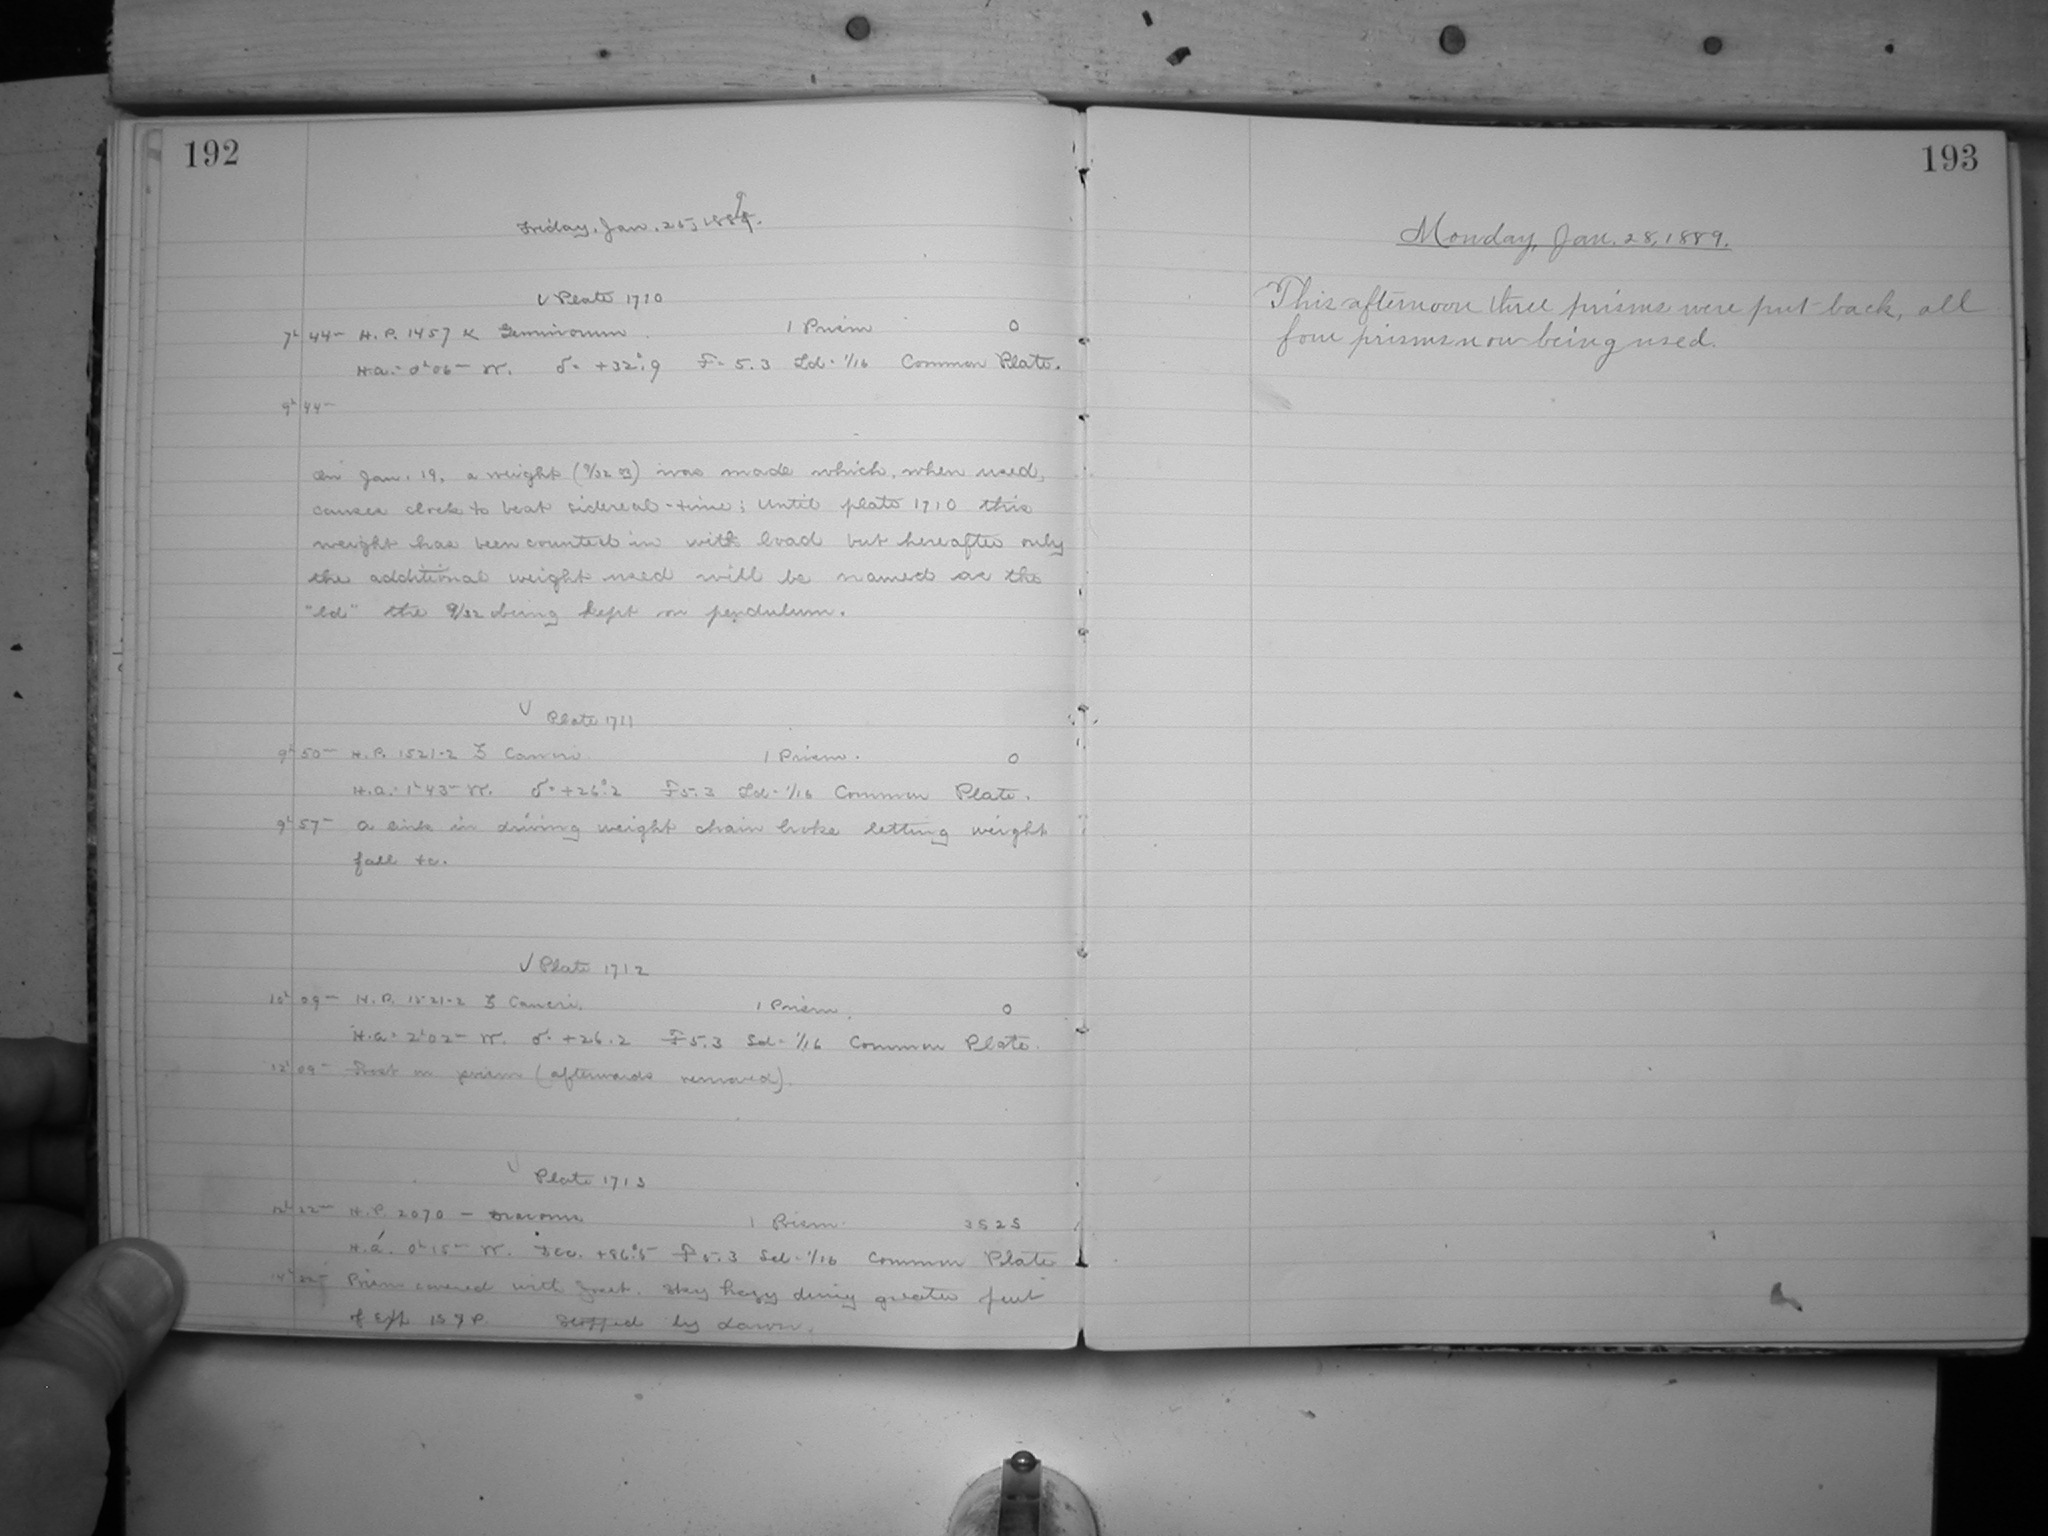 192
Friday, Jan. 25, 1889.
√ Plate 1710
7h 44m H.P. 1457 κ Geminorum 1 Prism 0
H.a. = 0h 06m W. δ = +32°.9 F = 5.3 Ld = 1/16 Common Plate.
9h 44m
On Jan. 19, a weight (9/32 oz) was made which, when used,
causes clock to beat sidereal-time; Until plate 1710 this
weight has been counted in with load but hereafter only
the additional weight used will be named as the
"ld" the 9/32 being kept on pendulum.
√ Plate 1711
9h 50m H.P. 1521-2 ζ Cancri 1 Prism. 0
H.a. = 1h 43m W. δ = +26°.2 F 5.3 Ld = 1/16 Common Plate.
9h 57m A link in driving weight chain broke letting weight
fall &c.
√ Plate 1712
10h 09m H.P. 1521-2 ζ Cancri. 1 Prism. 0
H.a = 2h 02m W. δ = +26.2 F 5.3 Ld = 1/16 Common Plate.
12h 09m Frost on prism (afterwards removed).
√ Plate 1713
12h 22m H.P. 2070 - Draconis 1 Prism 3525
H.a. 0h 15m W. Dec. +86°.5 F 5.3 Ld = 1/16 Common Plate
14h 22m Prism covered with frost. Sky hazy during greater part
of Exp. Stopped by dawn.
193
Monday, Jan. 28, 1889.
This afternoon three prisms were put back, all
four prisms now being used.